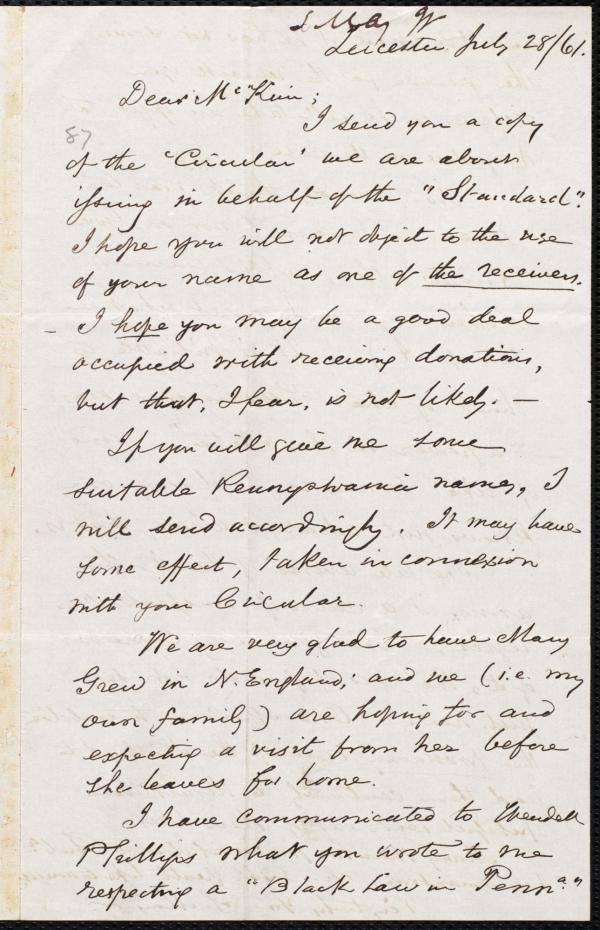 S. May Jr
Leicester July 28/61.
Dear McKim;
87
I send you a copy
of the 'Circular' we are about
issuing in behalf of the "Standard".
I hope you will not object to the use
of your name as one of the receivers.
– I hope you may be a good deal
occupied with receiving donations,
but that, I fear, is not likely. –
If you will give me some
suitable Pennsylvania names, I
will send accordingly. It may have
some effect, taken in connexion
with your Circular.
We are very glad to have Mary
Grew in N. England; and we (i.e. my
own family) are hoping for and
expecting a visit from her before
she leaves for home.
I have communicated to Wendell
Phillips what you wrote to me
respecting a "Black Law in Penna."